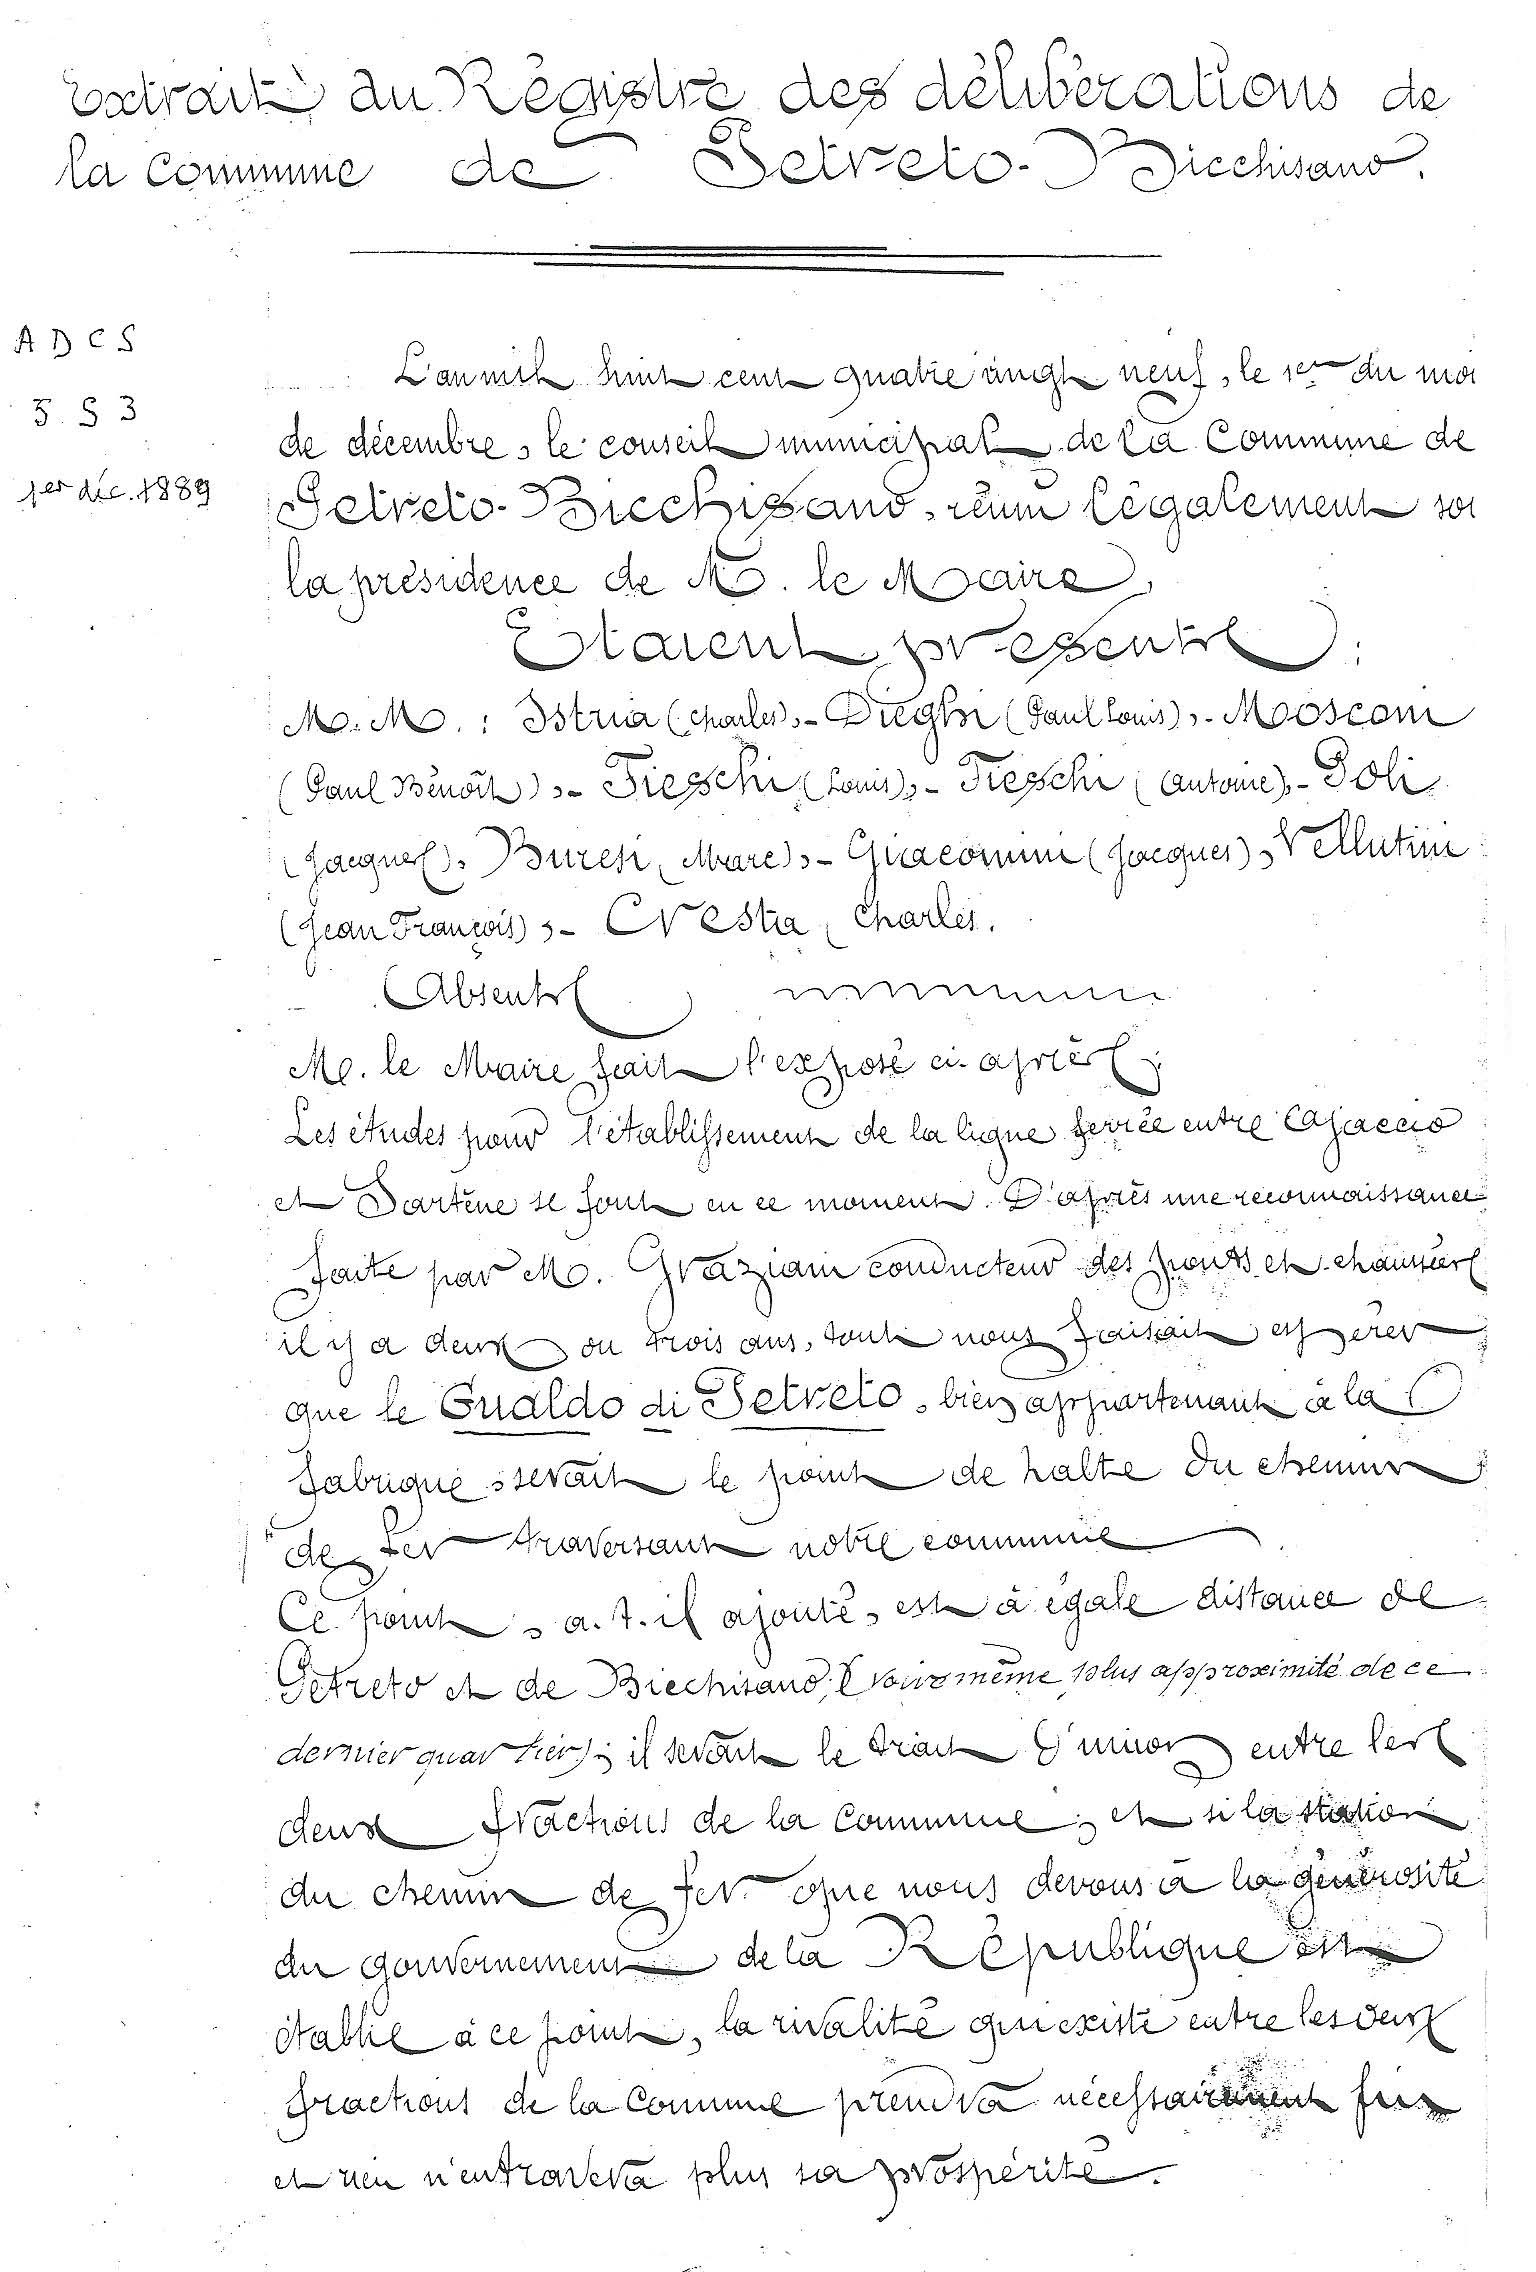 Extrait du Régistre des délibérations de
la commune de Petreto-Bicchisano.
A D C S
5 S 3
1er déc. 1889
L'an mil huit cent quatre vingt neuf, le 1er du moi
de décembre, le conseil municipal de la Commune de
Petreto-Bicchisano, réuni légalement sou
la présidence de M. le Maire,
Etaient présents :
M.M. : Istria (Charles),- Dieghi (Paul Louis),- Mosconi
(Paul Bénoît),- Fieschi (Louis),- Fieschi (Antoine),- Poli
(Jacques), Buresi (Marc),- Giacomini (Jacques), Vellutini
(Jean François),- Cresta (Charles.
Absents
M. le Maire fait l'exposé ci-après :
Les études pour l'établissement de la ligne ferrée entre Ajaccio
et Sartène se font en ce moment. D'après une reconnaissance
faite par M. Graziani conducteur des ponts et chaussées
il y a deux ou trois ans, tout nous faisait espérer
que le Gualdo di Petreto, bien appartenant à la
fabrique, serait le point de halte du chemin
de fer traversant notre commune
Ce point, a.t.il ajouté, est à égale distance de
Petreto et de Bicchisano, (voire même plus approximité de ce
dernier quartier); il serait le trait d'union entre les
deux fractions de la Commune; et si la station
du chemin de fer que nous devons à la générosité
du gouvernement de la République est
établie à ce point, la rivalité qui existe entre les deux
fractions de la Commune prendra nécessairement fin
et rien n'entravera plus sa prospérité.